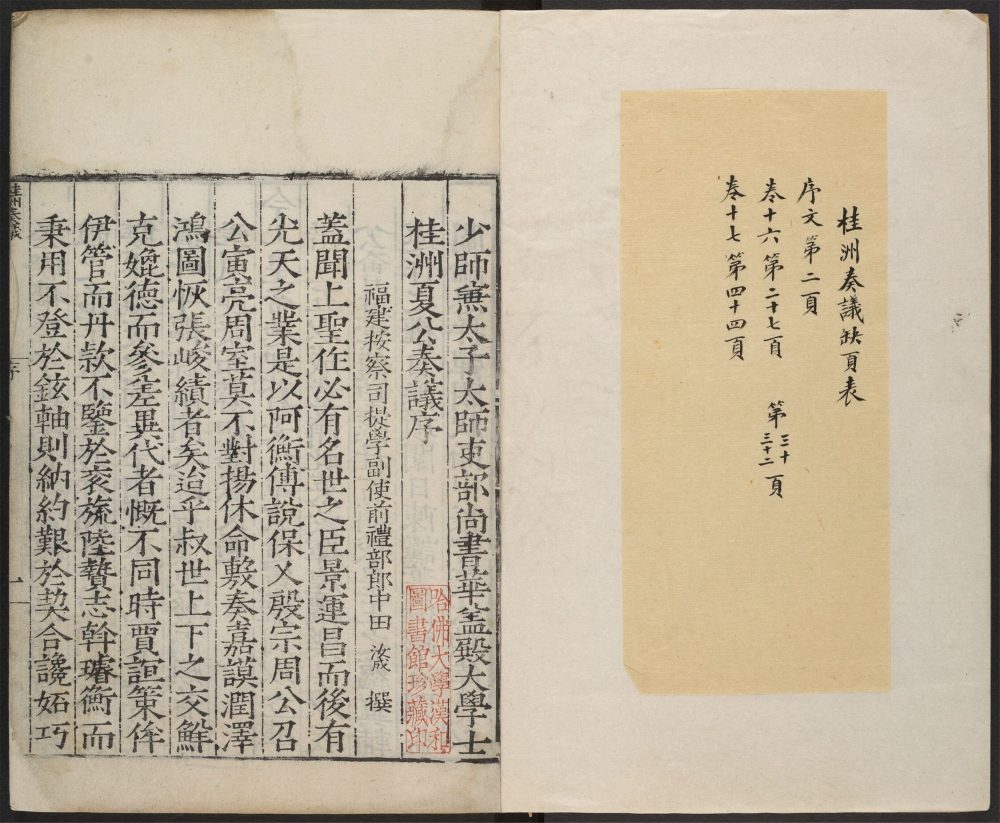 桂洲奏議缺頁表
序文第二頁
卷十六第二十七頁 第三十三十二頁
卷十七第四十四頁
少師兼太子太師吏部尚書華蓋殿大學士
桂洲夏公奏議序
哈佛大學漢和
圖書館珍藏印
福建按察司提學副使前禮部郎中田 汝成 撰
蓋聞上聖作必有名世之臣景運昌而後有
光天之業是以阿衡傅說保乂殷宗周公召
公寅亮周室莫不對揚休命敷奏嘉謨潤澤
鴻圖恢張峻績者矣迨乎叔世上下之交鮮
克媲德而參差異代者慨不同時賈誼策侔
伊管而丹款不鑒於衮旒陸贄志斡璿衡而
秉用不登於鉉軸則納約艱於契合讒妬巧
桂洲奏議
序
一